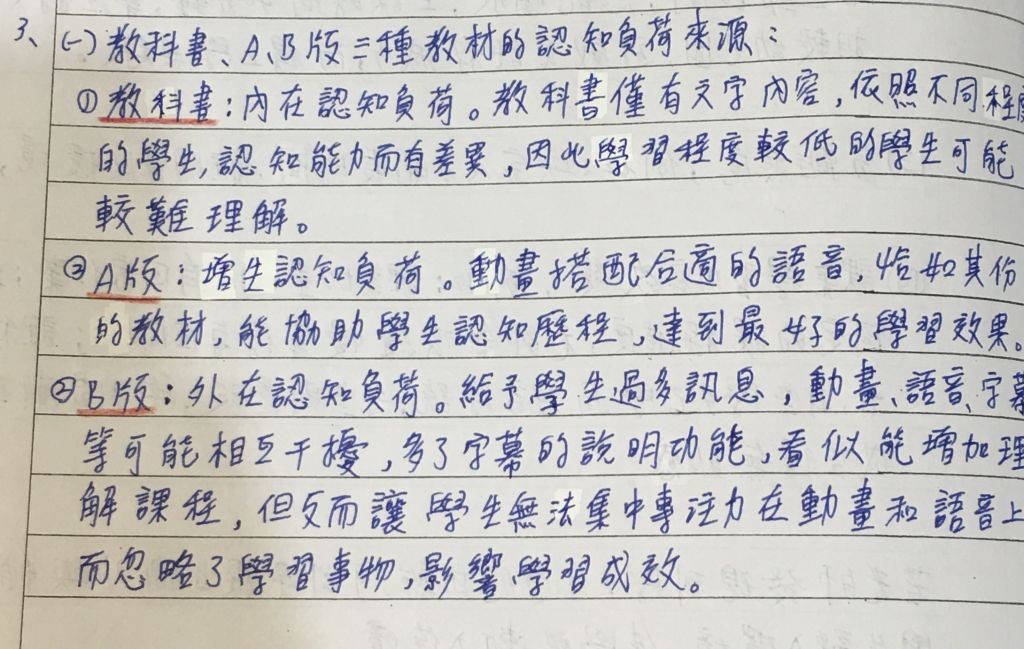 3、(一)教科書、A、B版三種教材的認知負荷來源:
①教科書:內在認知負荷。教科書僅有文字內容,依照不同程度
的學生,認知能力而有差異,因此學習程度較低的學生可能
較難理解。
③A版:增生認知負荷。動畫搭配合適的語音,恰如其份
的教材,能協助學生認知歷程,達到最好的學習效果。
②B版:外在認知負荷。給予學生過多訊息,動畫、語音、字幕
等可能相互干擾,多了字幕的說明功能,看似能增加理
解課程,但反而讓學生無法集中專注力在動畫和語音上
而忽略了學習事物,影響學習成效。